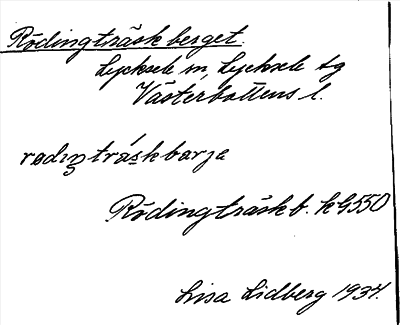 Rödingträsk berget.
Lycksele sn, Lycksele tg
Västerbottens l.
rødıŋtrá̱skbarjə
Rödingträskb. k G550
Lisa Lidberg 1937.